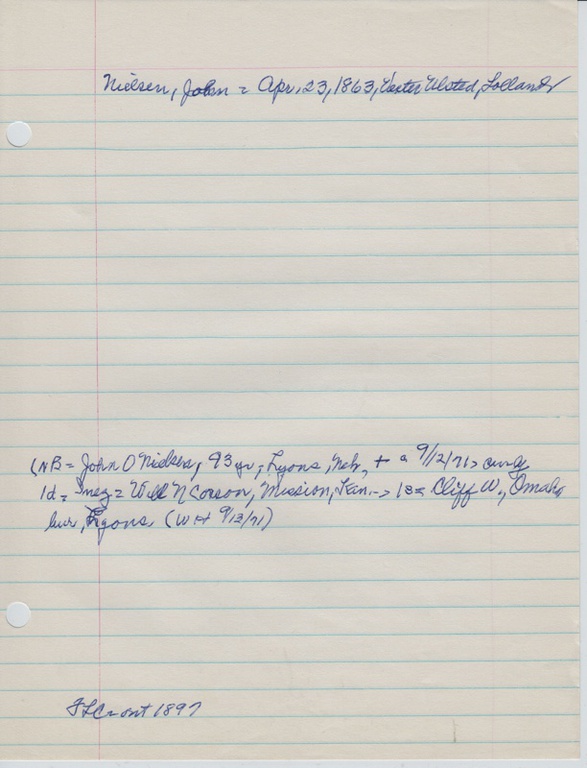 Nielsen, John = Apr. 23, 1863, Vester Ulsted, Lolland
(NB = John O Nielsen, 93 yr, Lyons, Neb, + a 9/2/71>
1d = Inez = W N Corson, Mission, Kan. -> 1s = Cliff W., Omaha
bur, Lyons (WH 9/13/71)
1897